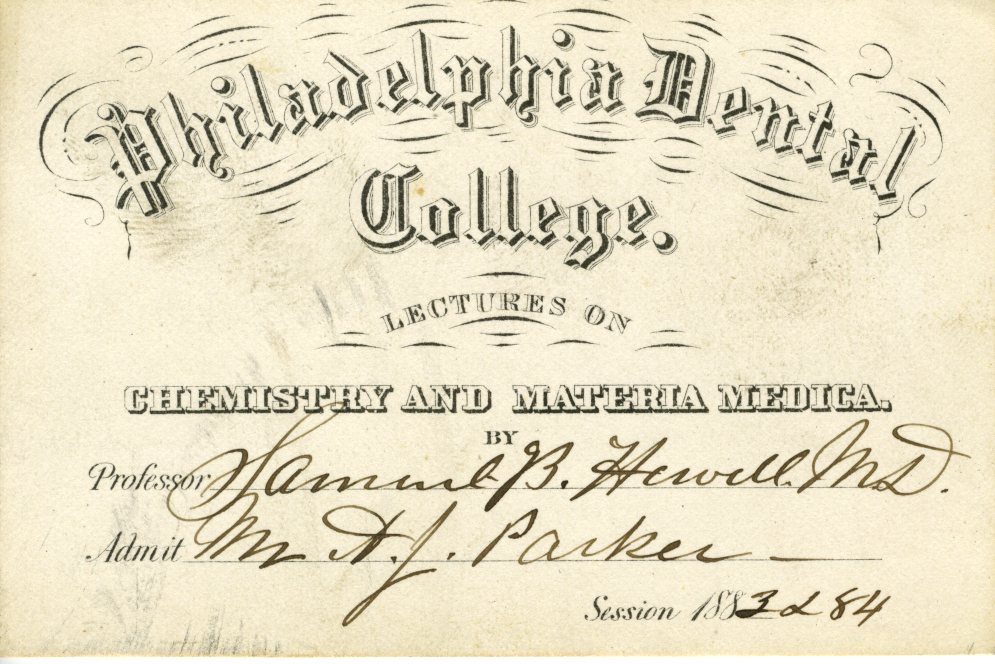 Philadelphia Dental
College.
LECTURES ON
CHEMISTRY AND MATERIA MEDICA.
BY
Professor Samuel B. Howell. M.D.
Admit Mr A. J. Parker —
Session 1883 & 84